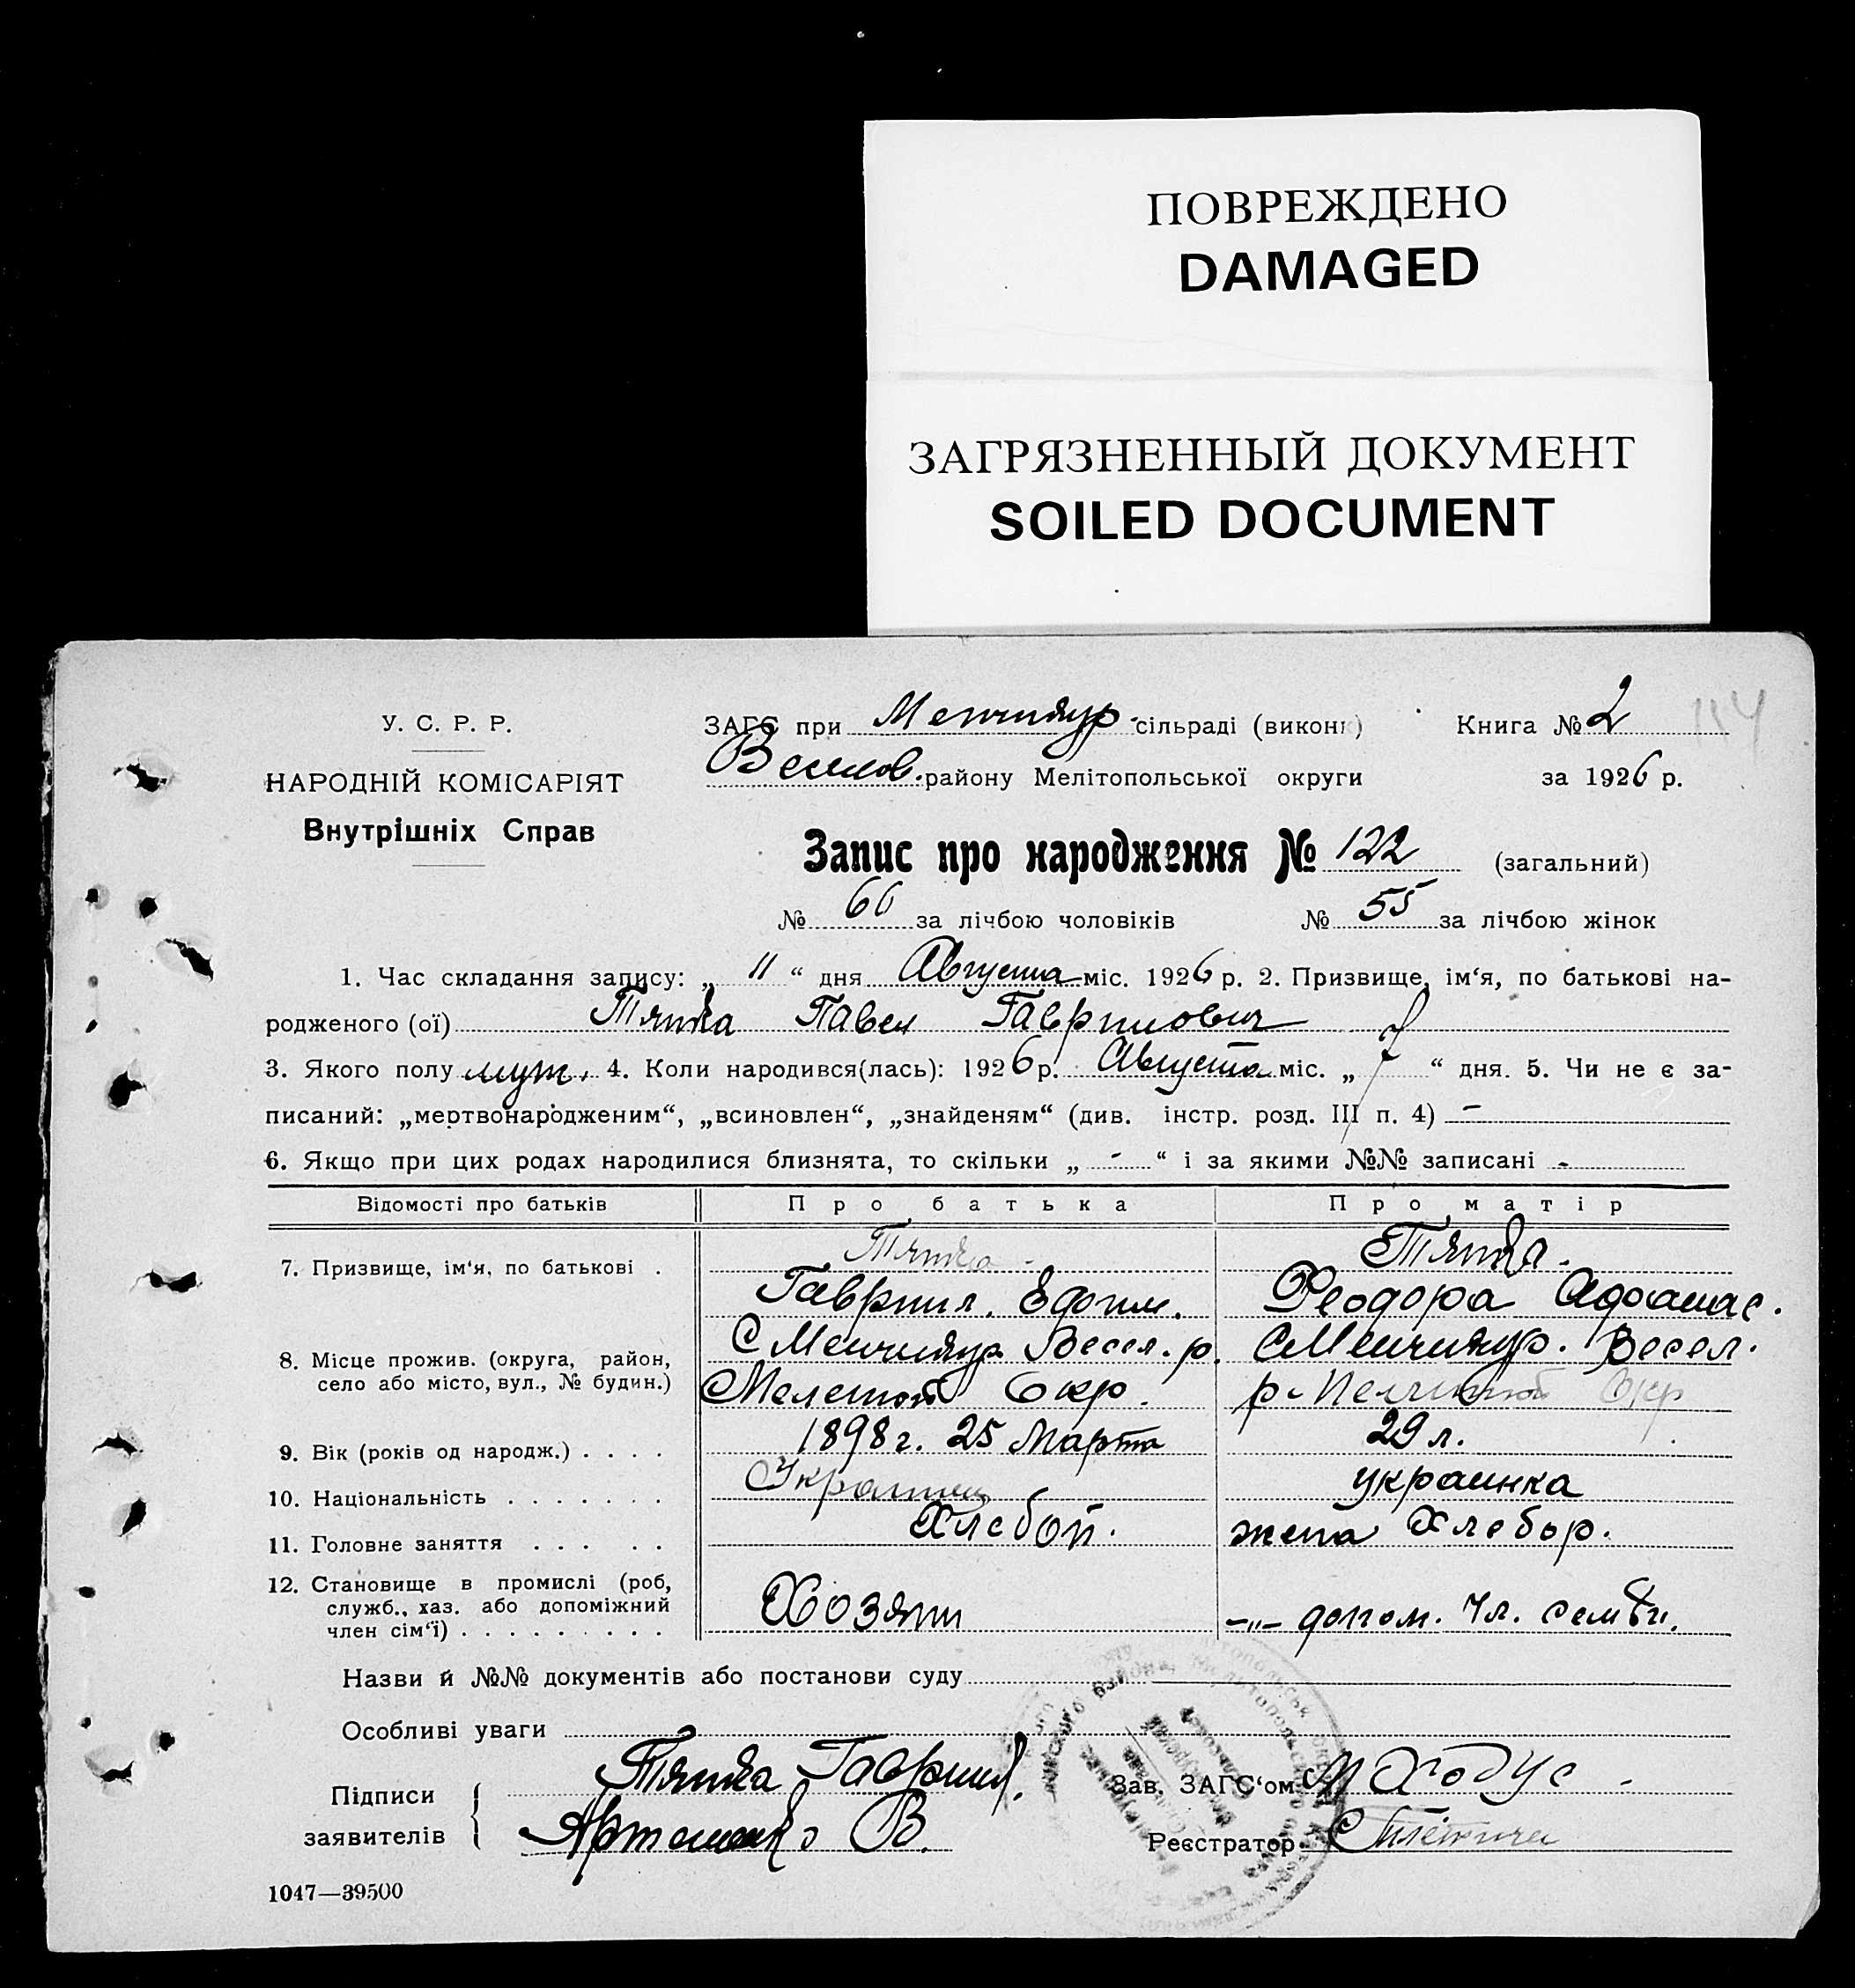 ПОВРЕЖДЕНО
DAMAGED
ЗАГРЯЗНЕННЫЙ ДОКУМЕНТ
SOILED DOCUMENT
114
У. С. Р. Р.
НАРОДНІЙ КОМІСАРІЯТ
Внутрішніх Справ
ЗАГС при Менчикур. сільраді (викон) Книга № 2
Веселов. району Мелітопольської округи за 1926 р.
Запис про народження № 122 (загальний)
№ 66 за лічбою чоловіків № 55 за лічбою жінок
1. Час складання запису: „ 11 “ дня Августа міс. 1926 р. 2. Призвище, ім‘я, по батькові на-
родженого (ої) Тятка Павел Гаврилович
3. Якого полу муж. 4. Коли народився(лась): 1926 р. Августа міс. „ 7 “ дня. 5. Чи не є за-
писаний: „мертвонародженим“, „всиновлен“, „знайденям“ (див. інстр. розд. III п. 4) –
6. Якщо при цих родах народилися близнята, то скільки „ - “ і за якими №№ записані -
Відомості про батьків Про батька Про матір
7. Призвище, ім‘я, по батькові . Тятка Тятка.
Гаврил. Ефим. Феодора Афанас.
8. Місце прожив. (округа, район, село або місто, вул., № будин.) С Менчикур Весел. р. С Менчикур. Весел.
Мелитоп Окр. р. Мелитоп Окр
9. Вік (років од народж.) . . . . 1898 г. 25 Марта 29 л.
10. Національність . . . . . . . Украинец украинка
11. Головне заняття . . . . . Хлебоп. жена Хлебор.
12. Становище в промислі (роб, служб., хаз. або допоміжний член сім‘ї) . . . . . . . . . Хозяин –„– допом. чл. семьи.
Назви й №№ документів або постанови суду
Особливі уваги
Підписи заявителів { Тятка Гаврил. Зав. ЗАГС‘ом Ходус
В. Реєстратор
1047—39500